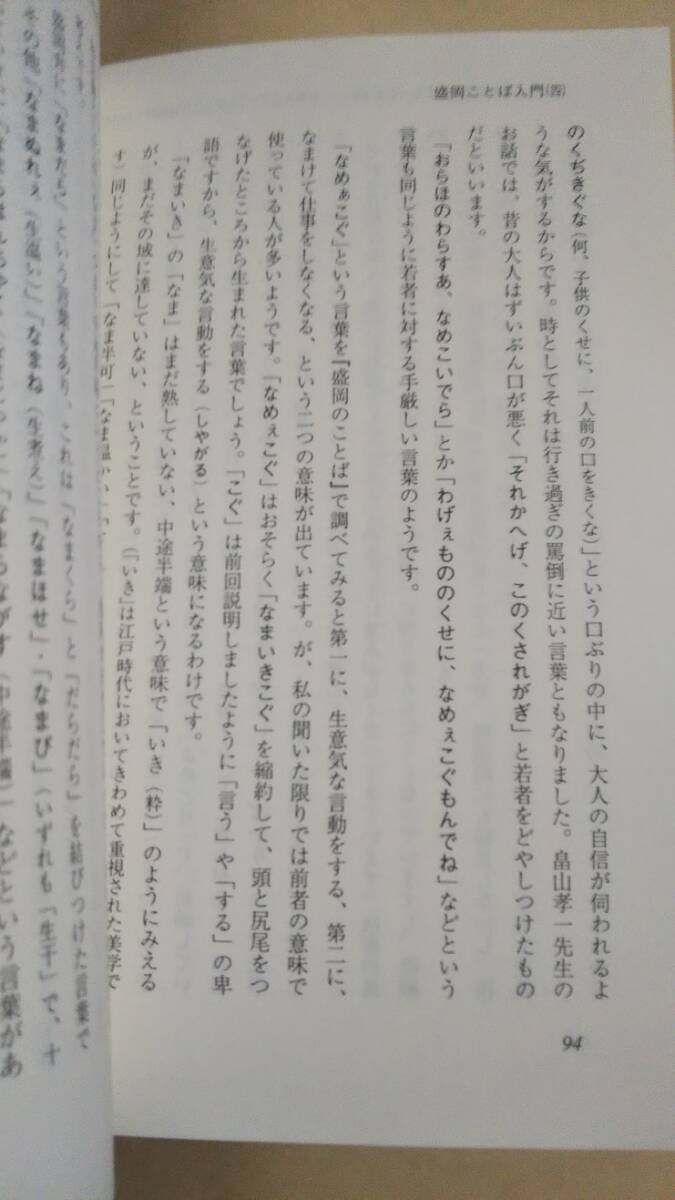 盛岡ことば入門(四)
のくぢきぐな(何、子供のくせに、一人前の口をきくな)」という口ぶりの中に、大人の自信が伺われるよ
うな気がするからです。時としてそれは行き過ぎの罵倒に近い言葉ともなりました。畠山孝一先生の
お話では、昔の大人はずいぶん口が悪く「それかへげ、このくされがぎ」と若者をどやしつけたもの
だといいます。
「おらほのわらすあ、なめこいでら」とか「わげぇもののくせに、なめぇこぐもんでね」などという
言葉も同じように若者に対する手厳しい言葉のようです。
「なめぁこぐ」という言葉を『盛岡のことば』で調べてみると第一に、生意気な言動をする、第二に、
なまけて仕事をしなくなる、という二つの意味が出ています。が、私の聞いた限りでは前者の意味で
使っている人が多いようです。「なめぇこぐ」はおそらく「なまいきこぐ」を縮約して、頭と尻尾をつ
なげたところから生まれた言葉でしょう。「こぐ」は前回説明しましたように「言う」や「する」の卑
語ですから、生意気な言動をする(しやがる)という意味になるわけです。
「なまいき」の「なま」はまだ熟していない、中途半端という意味で「いき(粋)」のようにみえる
が、まだその域に達していない、ということです。(「いき」は江戸時代においてきわめて重視された美学で
す)同じようにして「なま半可」「なま温かい」
94
という言葉もあり、これは「なまくら」と「だらだら」を結びつけた言葉で
その他「なまぬれぇ(生温い)」「なまね(生煮え)」「なまほせ」・「なまび」(いずれも「生干」で、十
(中途半端)」などという言葉があ